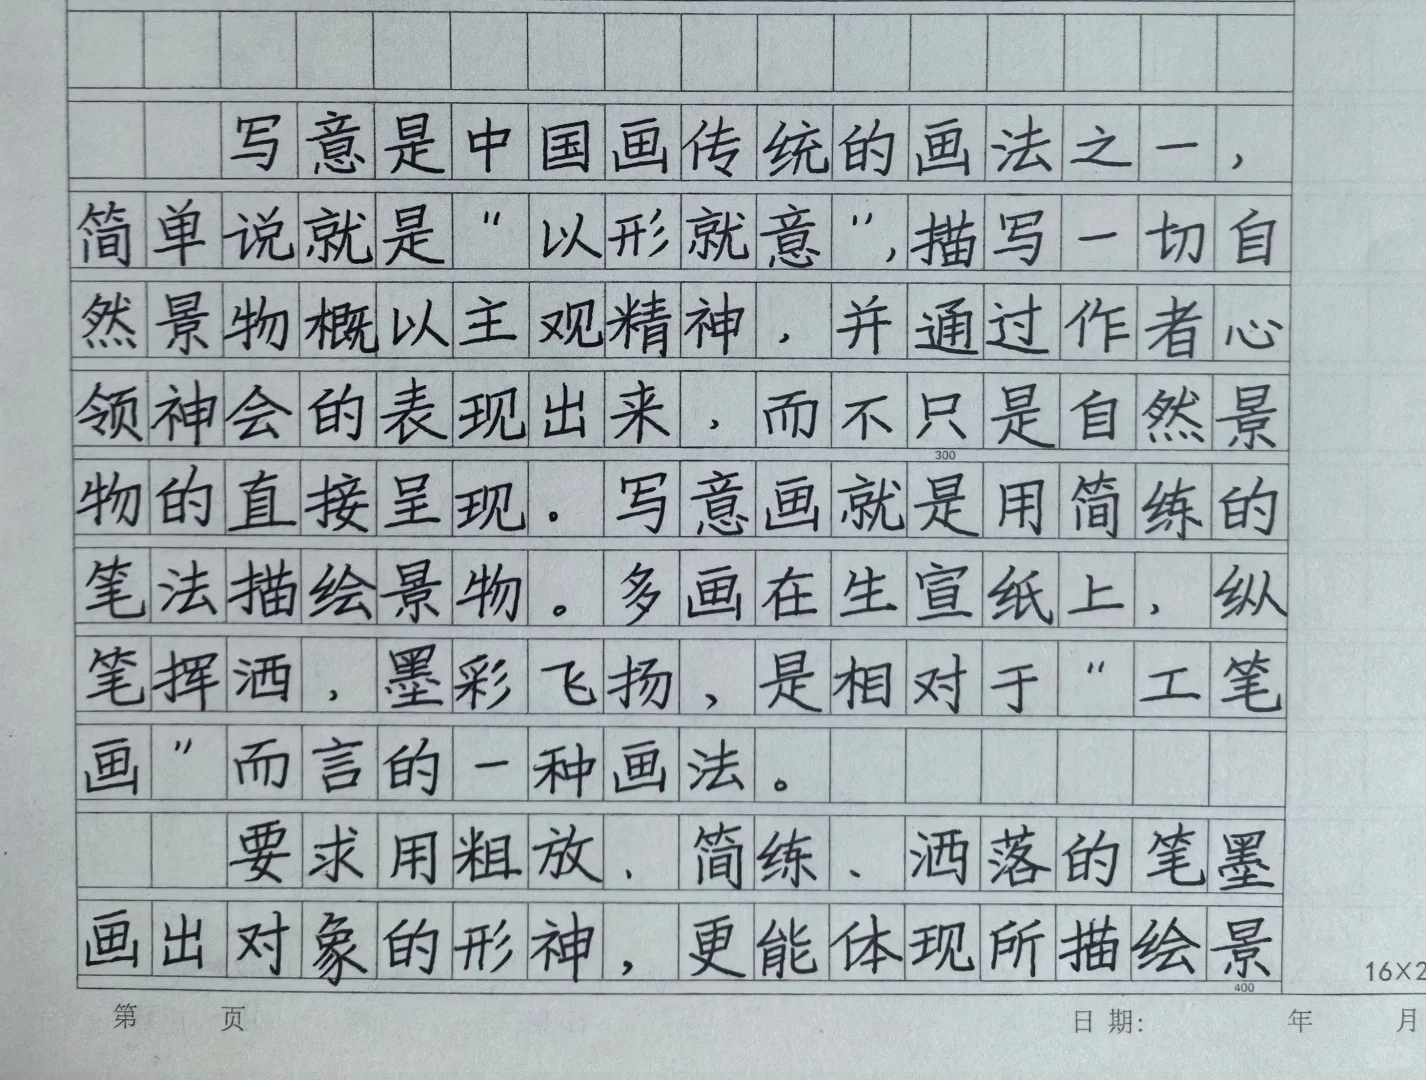 写意是中国画传统的画法之一，
简单说就是“以形就意”，描写一切自
然景物概以主观精神，并通过作者心
领神会的表现出来，而不只是自然景
300
物的直接呈现。写意画就是用简练的
笔法描绘景物。多画在生宣纸上，纵
笔挥洒，墨彩飞扬，是相对于“工笔
画”而言的一种画法。
要求用粗放、简练、洒落的笔墨
画出对象的形神，更能体现所描绘景
400
16×2
第 页 日期: 年 月